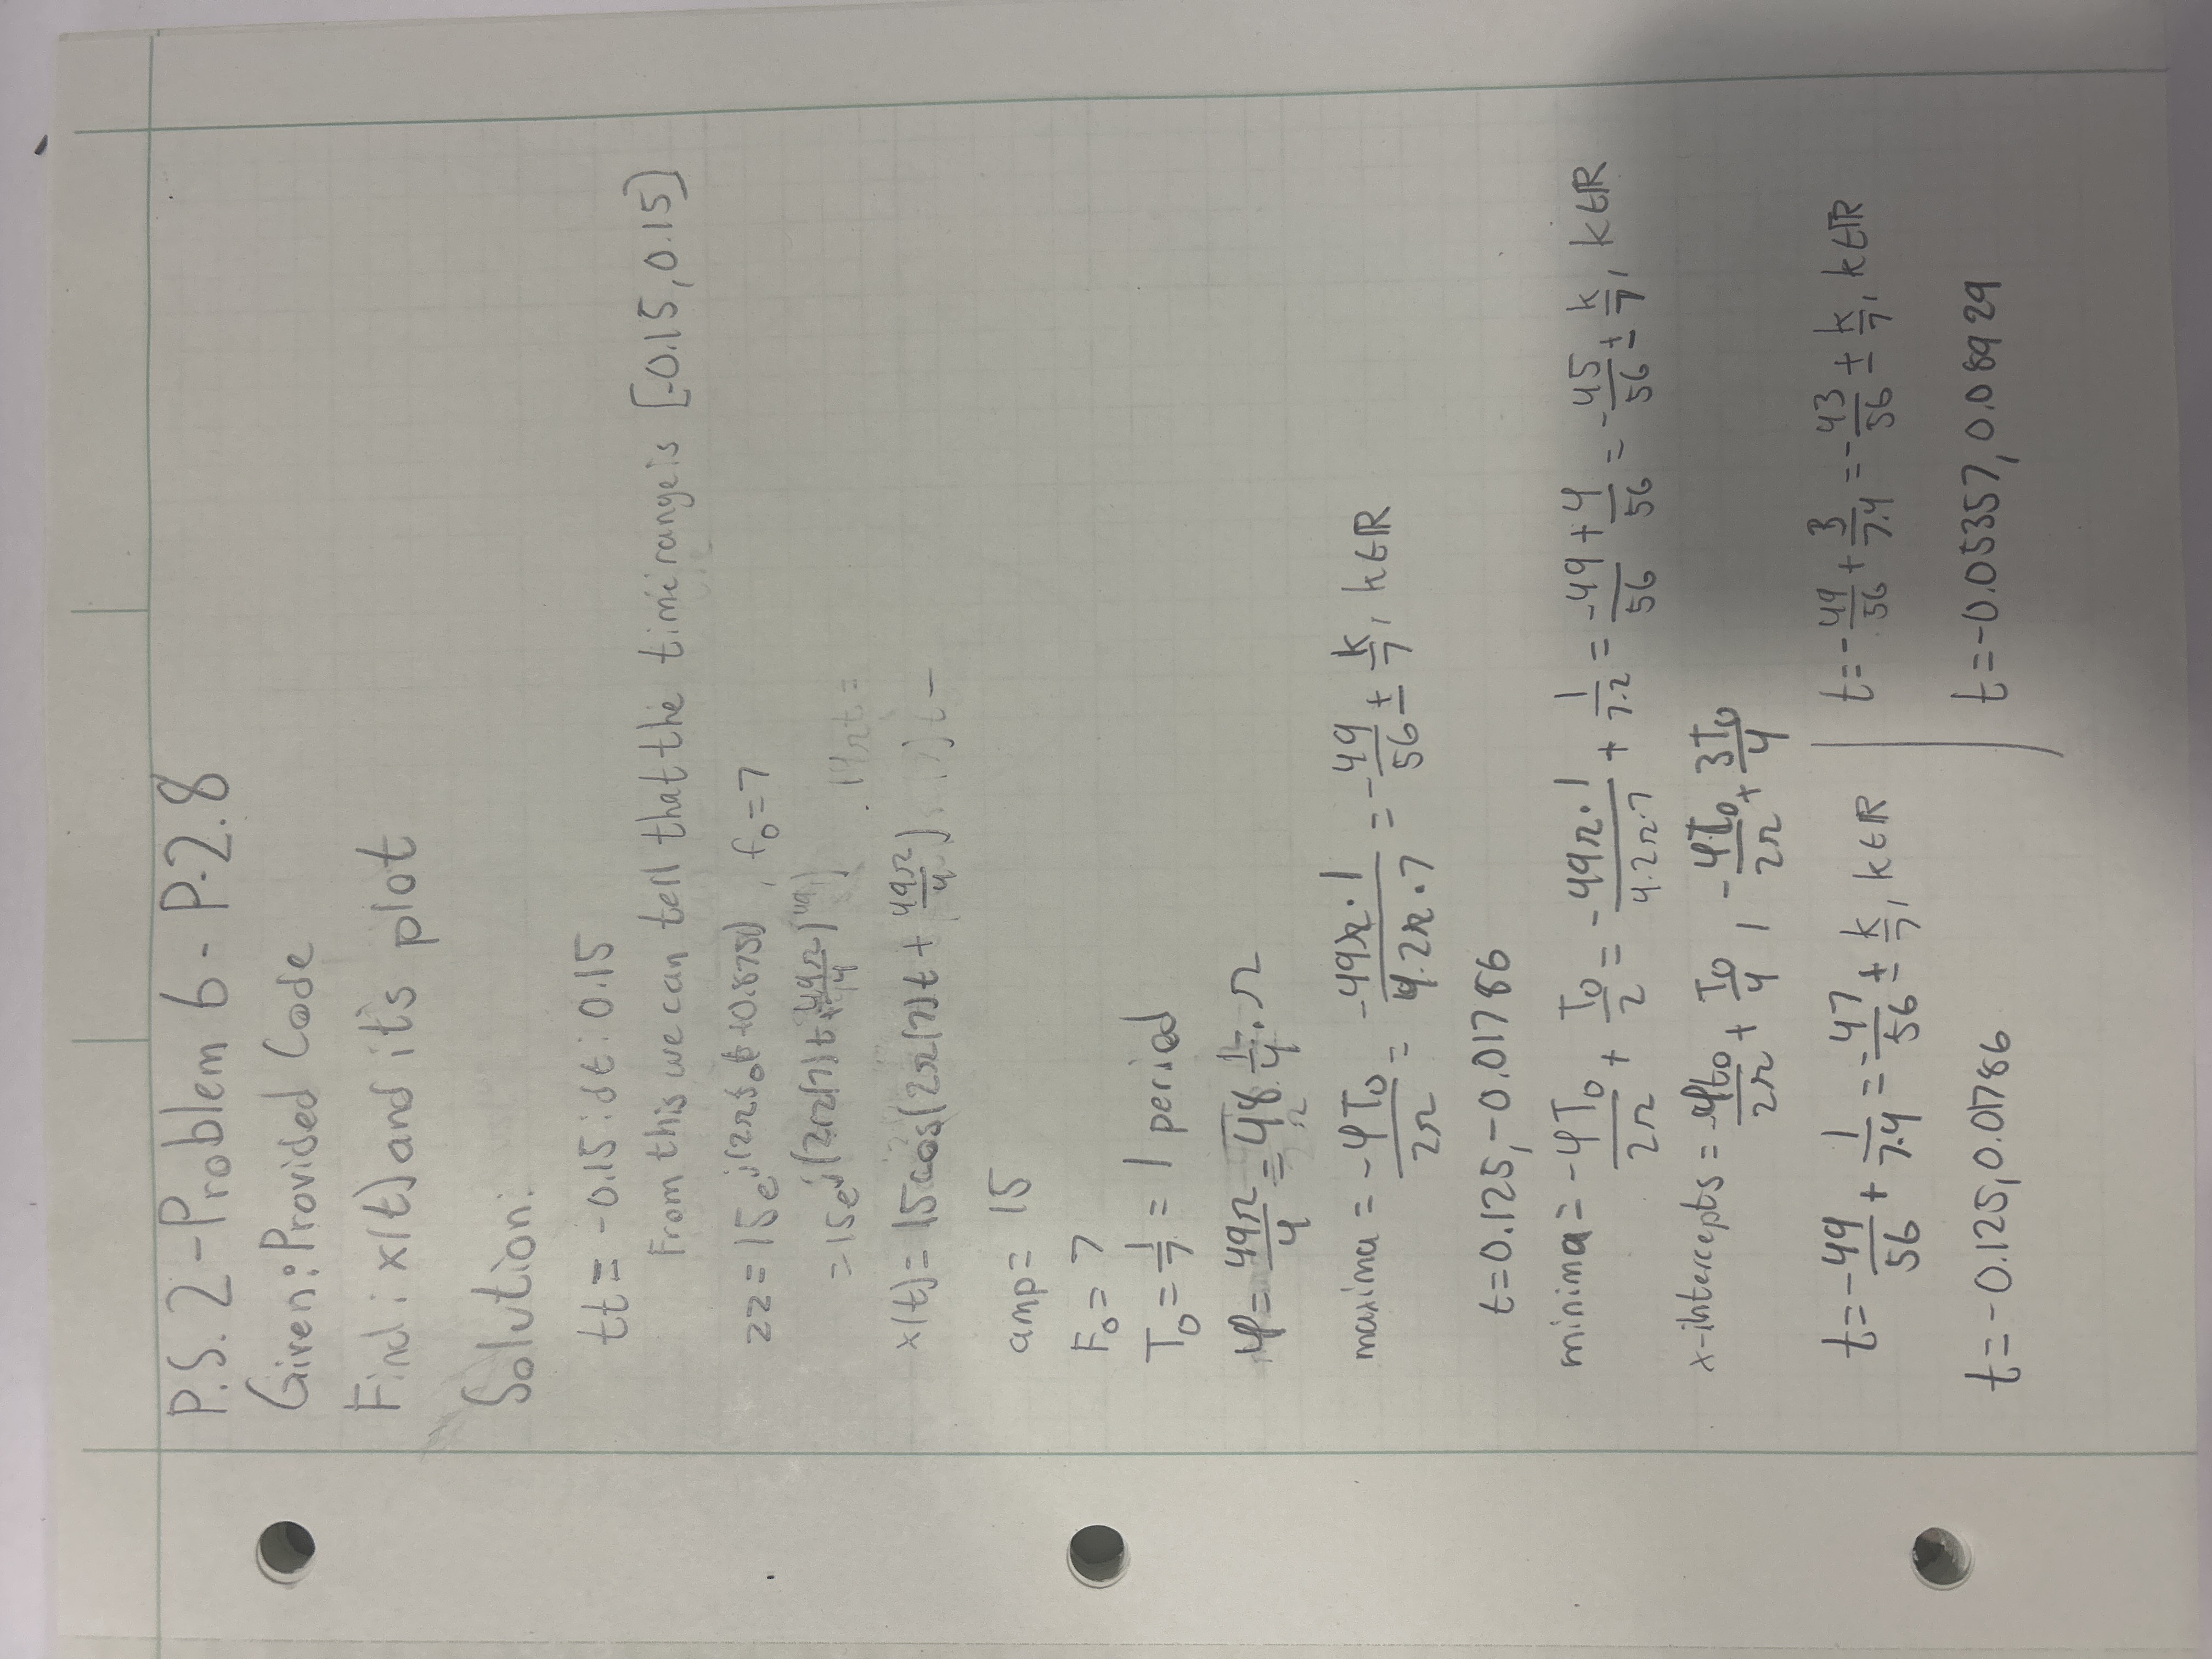 P.S. 2 - Problem 6 - P.2.8
Given: Provided Code
Find: x(t) and it's plot
Solution:
tt = -0.15:dt:0.15
From this we can tell that the time range is [-0.15, 0.15]
zz = 15e^j(2πf₀(t+0.875)), f₀ = 7
= 15e^j(2π(7)t + 49π/4)
x(t) = 15cos(2π(7)t + 49π/4)
amp = 15
F₀ = 7
T₀ = 1/7 = 1 period
φ = 49π/4 = 48 1/4 · π
maxima = -φT₀/2π = -49π·1/4·2π·7 = -49/56 ± k/7, k∈ℝ
t = 0.125, -0.01786
minima = -φT₀/2π + T₀/2 = -49π·1/4·2π·7 + 1/7·2 = -49/56 + 4/56 = -45/56 ± k/7, k∈ℝ
x-intercepts = -φt₀/2π + T₀/4, -φT₀/2π + 3T₀/4
t = -49/56 + 1/7·4 = -47/56 ± k/7, k∈ℝ
t = -0.125, 0.01786
t = -49/56 + 3/7·4 = -43/56 ± k/7, k∈ℝ
t = -0.05357, 0.08929